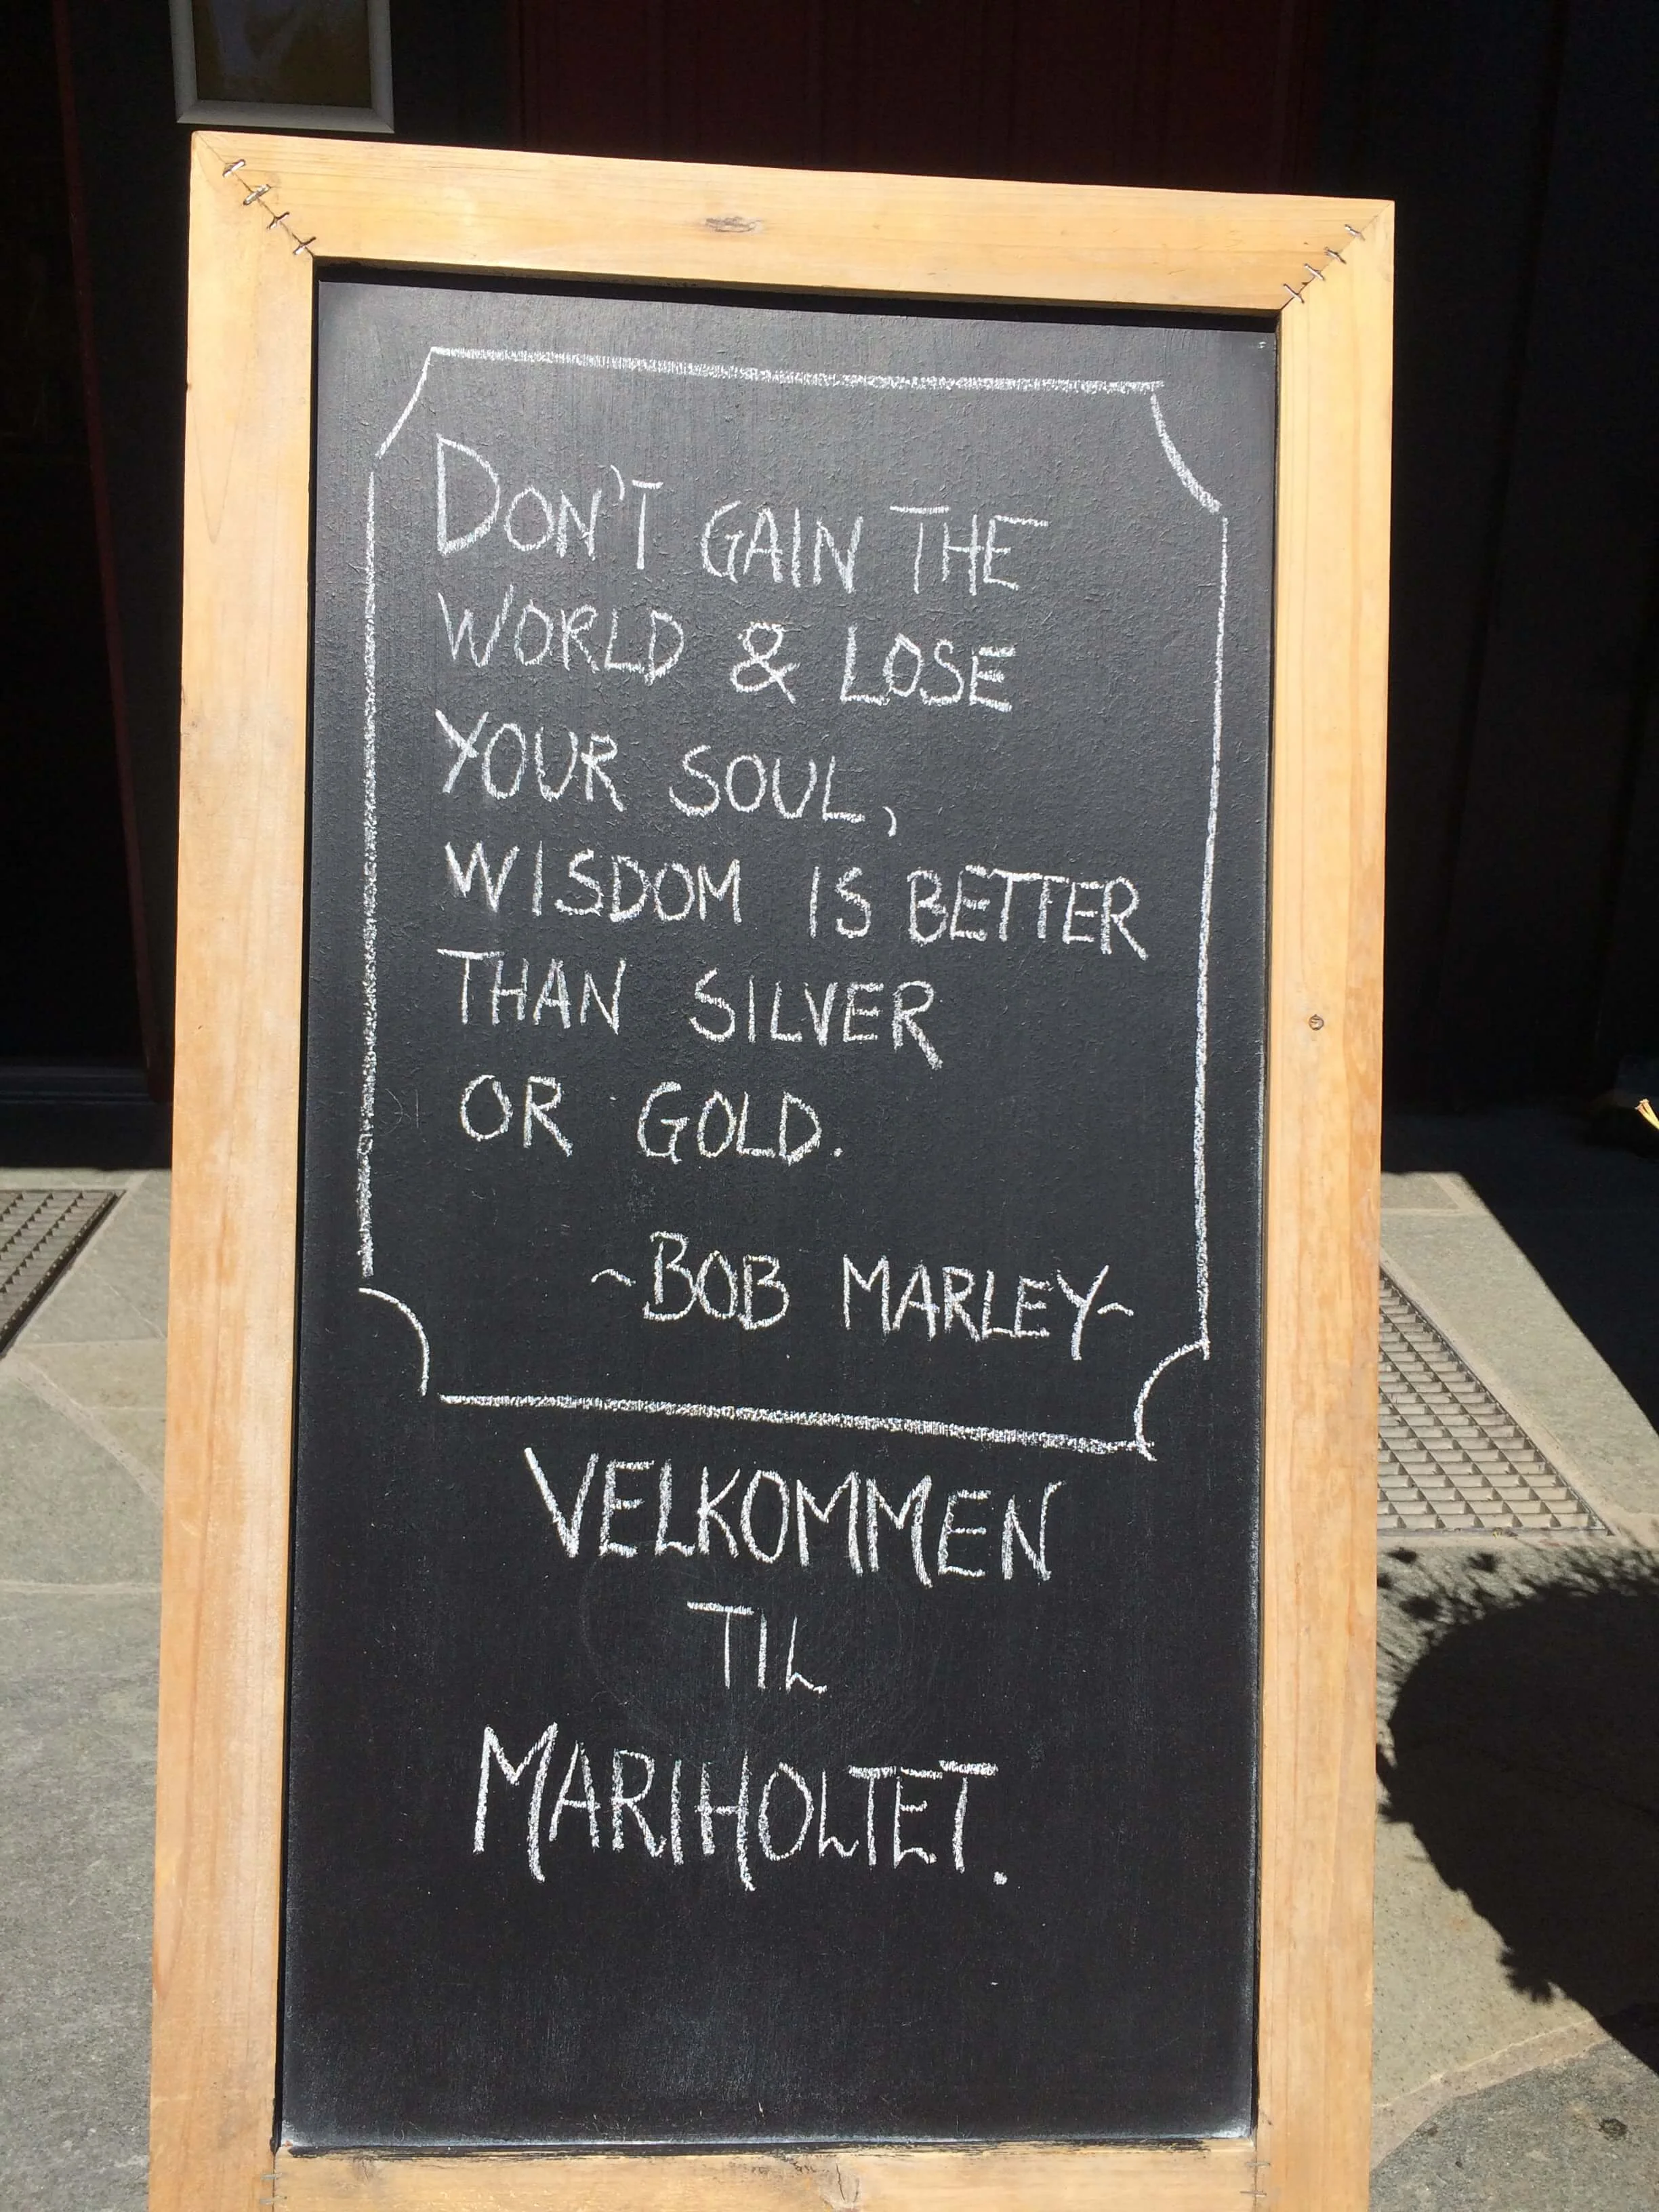 DON'T GAIN THE
WORLD & LOSE
YOUR SOUL,
WISDOM IS BETTER
THAN SILVER
OR GOLD.
~BOB MARLEY~
VELKOMMEN
TIL
MARIHOLTET.